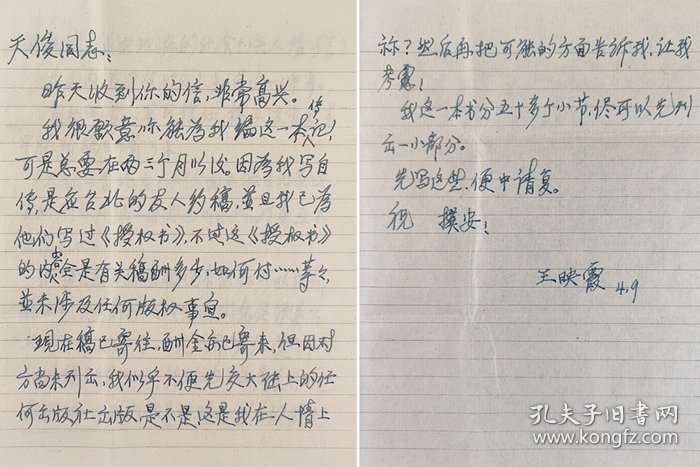 天俊同志：
昨天收到你的信，非常高兴。
我很愿意你能为我编这一本传记，
可是总要在两三个月以后。因为我写自
传，是应台北的友人约稿，并且我已为
他们写过《授权书》，不过这《授权书》
的内容全是有关稿酬多少，如何付……等等，
并未涉及任何版权事宜。
现在稿已寄往，酬金亦已寄来，但因对
方尚未刊出，我似乎不便先交大陆上的任
何出版社出版，是不是这是我在人情上
祘？然后再把可能的方面告诉我，让我
考虑！
我这一本书分五十多个小节，尽可以先刊
出一小部分。
先写这些，便中请复。
祝 撰安！
王映霞 4.9
孔夫子旧书网
www.kongfz.com